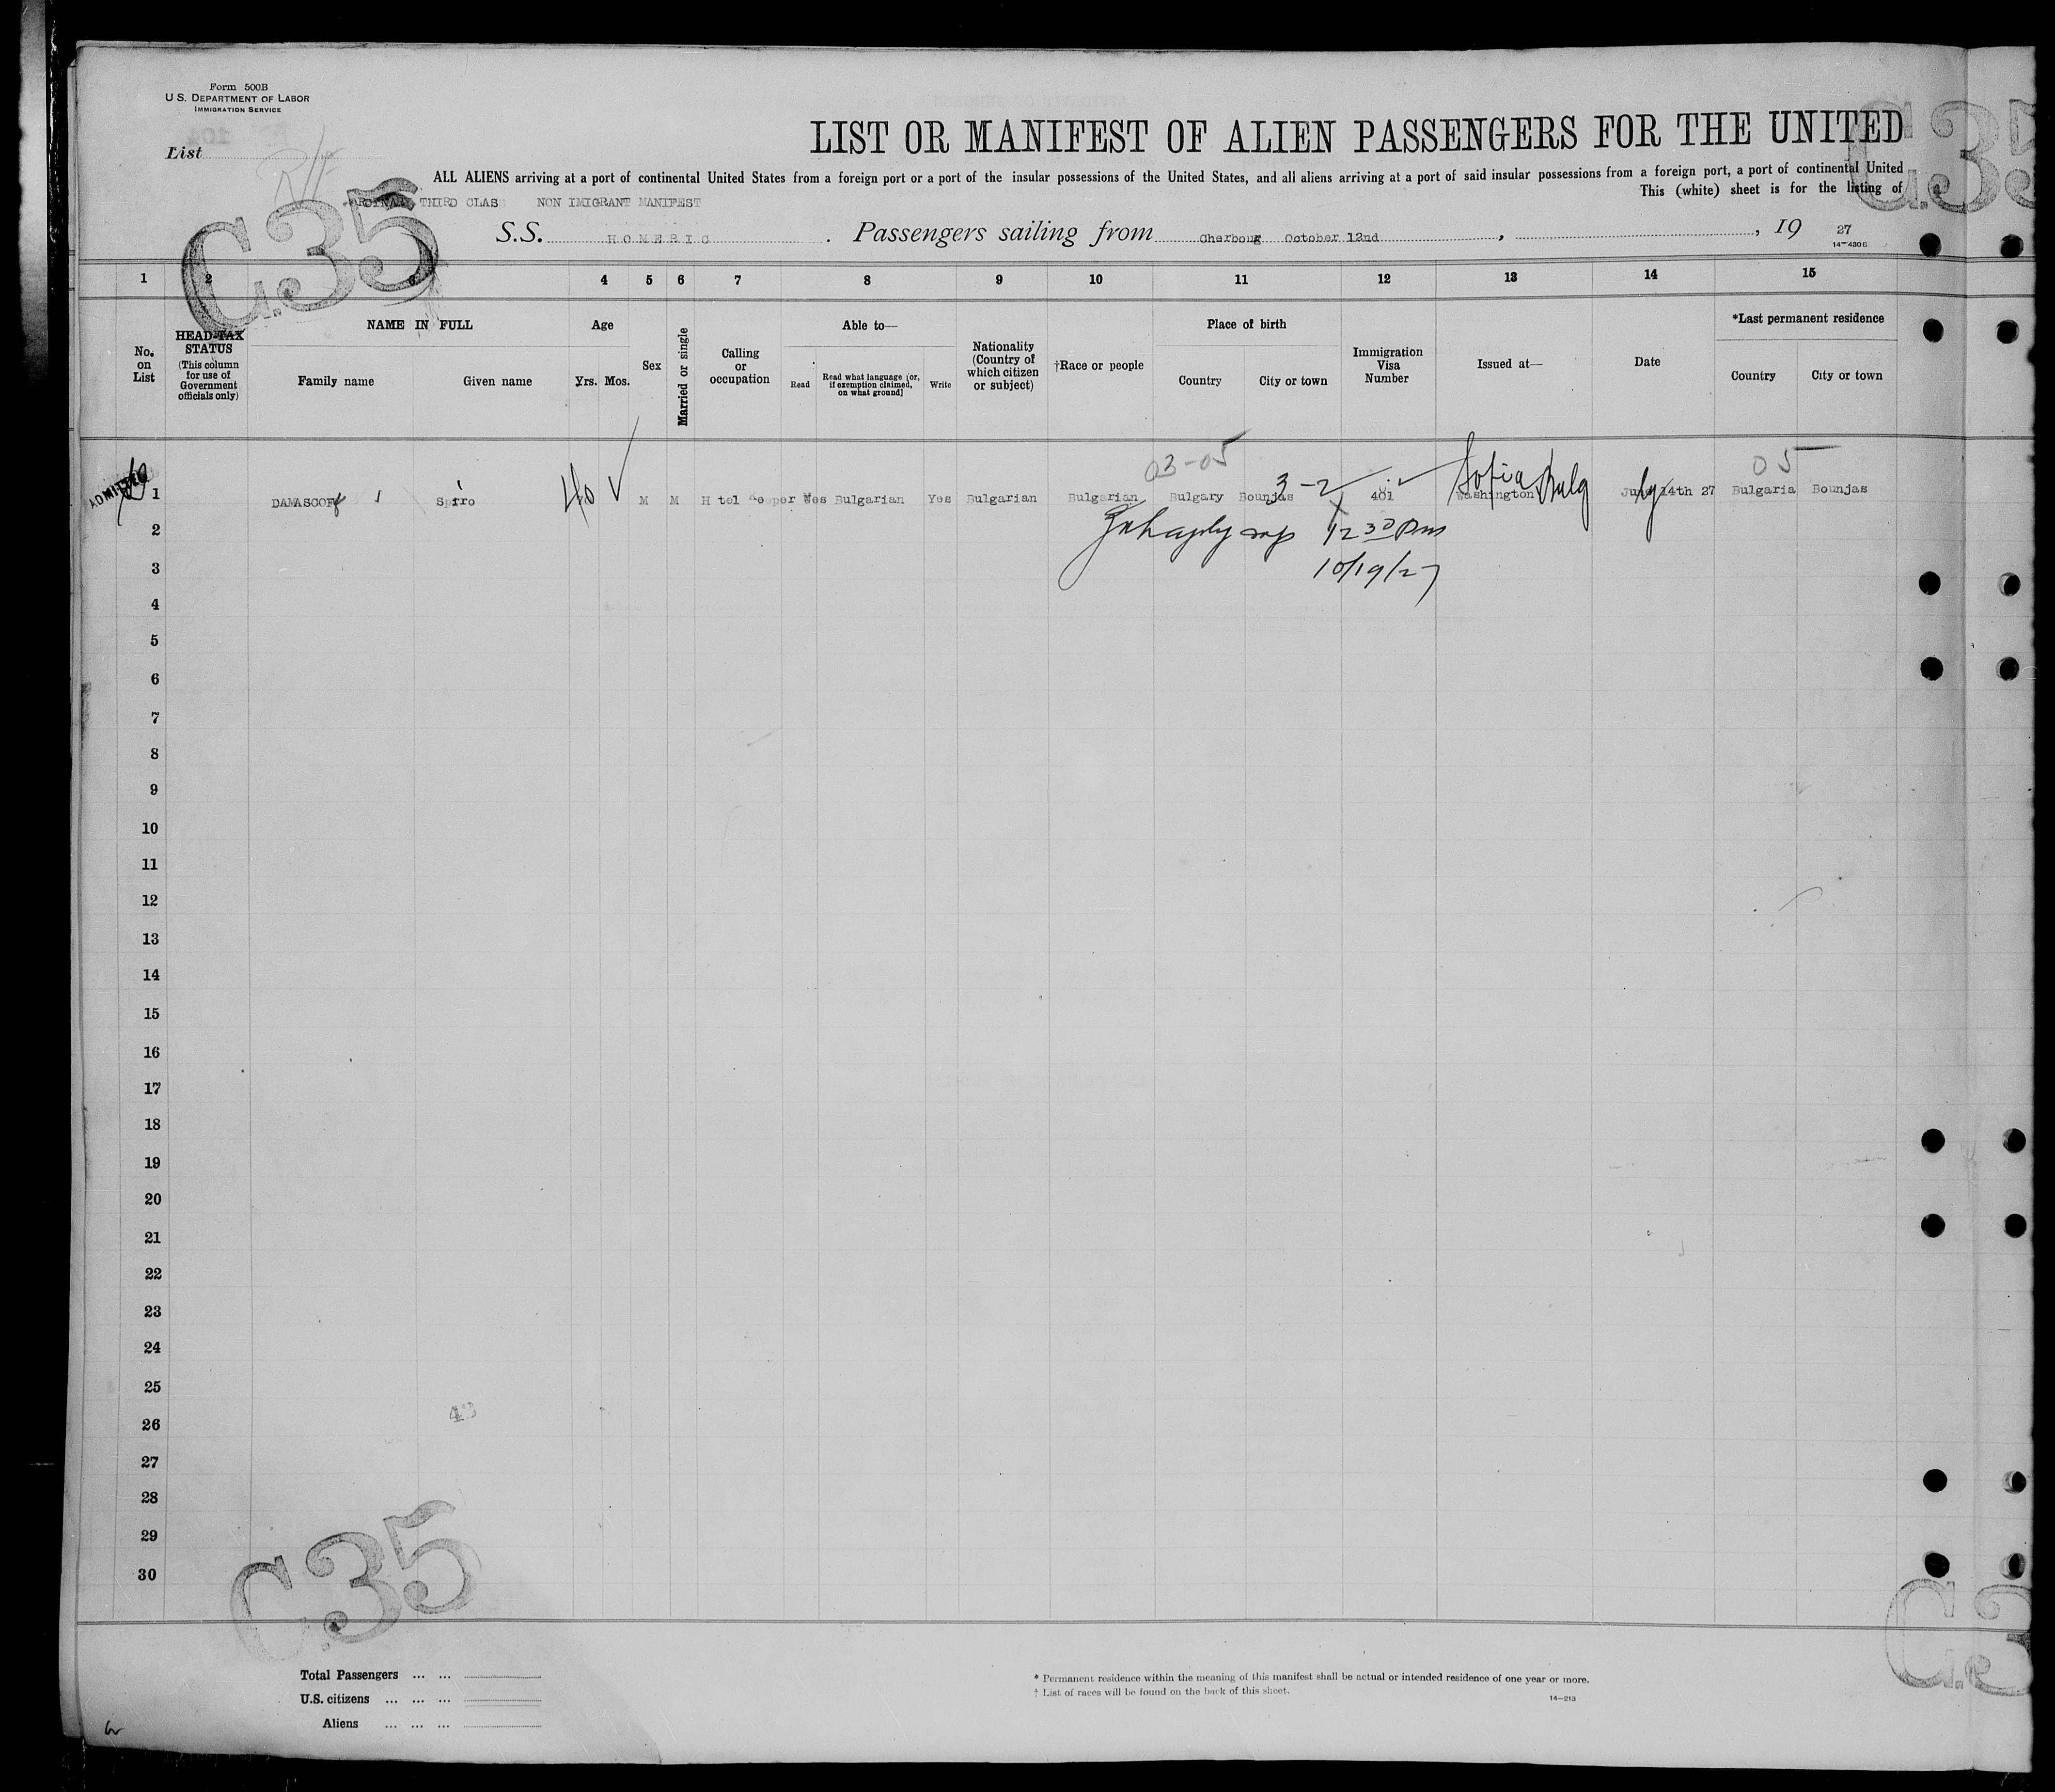 Form 500B
U.S. DEPARTMENT OF LABOR
IMMIGRATION SERVICE
List
LIST OR MANIFEST OF ALIEN PASSENGERS FOR THE UNITED
ALL ALIENS arriving at a port of continental United States from a foreign port or a port of the insular possessions of the United States, and all aliens arriving at a port of said insular possessions from a foreign port, a port of continental United
This (white) sheet is for the listing of
THIRD CLASS NON IMIGRANT MANIFEST
C.35
C.35
S.S. HOMERIC. Passengers sailing from Cherboug October 12nd, , 19 27
14-430B
1 2 3 4 5 6 7 8 9 10 11 12 13 14 15
No. on List
HEAD-TAX STATUS
(This column for use of Government officials only)
NAME IN FULL
Family name Given name
Age
Yrs. Mos.
Sex
Married or single
Calling or occupation
Able to—
Read
Read what language [or, if exemption claimed, on what ground]
Write
Nationality (Country of which citizen or subject)
†Race or people
Place of birth
Country City or town
Immigration Visa Number
Issued at—
Date
*Last permanent residence
Country City or town
03-05 3-2 Sofia Bulg 05
ADMITTED
1 DAMASCOFf Spiro 40 M M H tel eeper Yes Bulgarian Yes Bulgarian Bulgarian Bulgary Bounjas 401 Washington 14th 27 Bulgaria Bounjas
2 12 30 Pm
3 10/19/27
4
5
6
7
8
9
10
11
12
13
14
15
16
17
18
19
20
21
22
23
24
25
26
43
27
28
29
30
C.35
C.3
Total Passengers ... ...
U.S. citizens ... ... ...
Aliens ... ... ...
* Permanent residence within the meaning of this manifest shall be actual or intended residence of one year or more.
† List of races will be found on the back of this sheet.
14-213